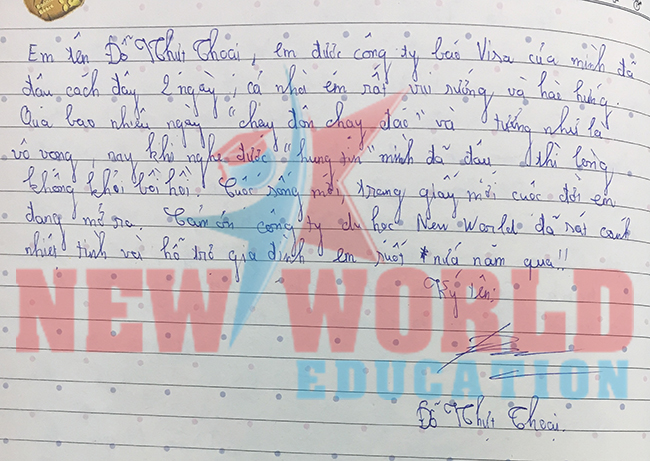 Em tên Đỗ Thụt Thoại, em được công ty báo Visa của mình đã
đậu cách đây 2 ngày, cả nhà em rất vui sướng và hào hứng.
Qua bao nhiêu ngày "chạy đôn chạy đáo" và tưởng như là
vô vọng, nay khi nghe được "hung tin" mình đã đậu thì lòng
không khỏi bồi hồi. Cuộc sống mới, trang giấy mới cuộc đời em
đang mở ra. Cảm ơn công ty du học New World đã sát cánh
nhiệt tình và hỗ trợ gia đình em suốt nửa năm qua!!
Ký tên:
NEW WORLD
EDUCATION
Đỗ Thụt Thoại.